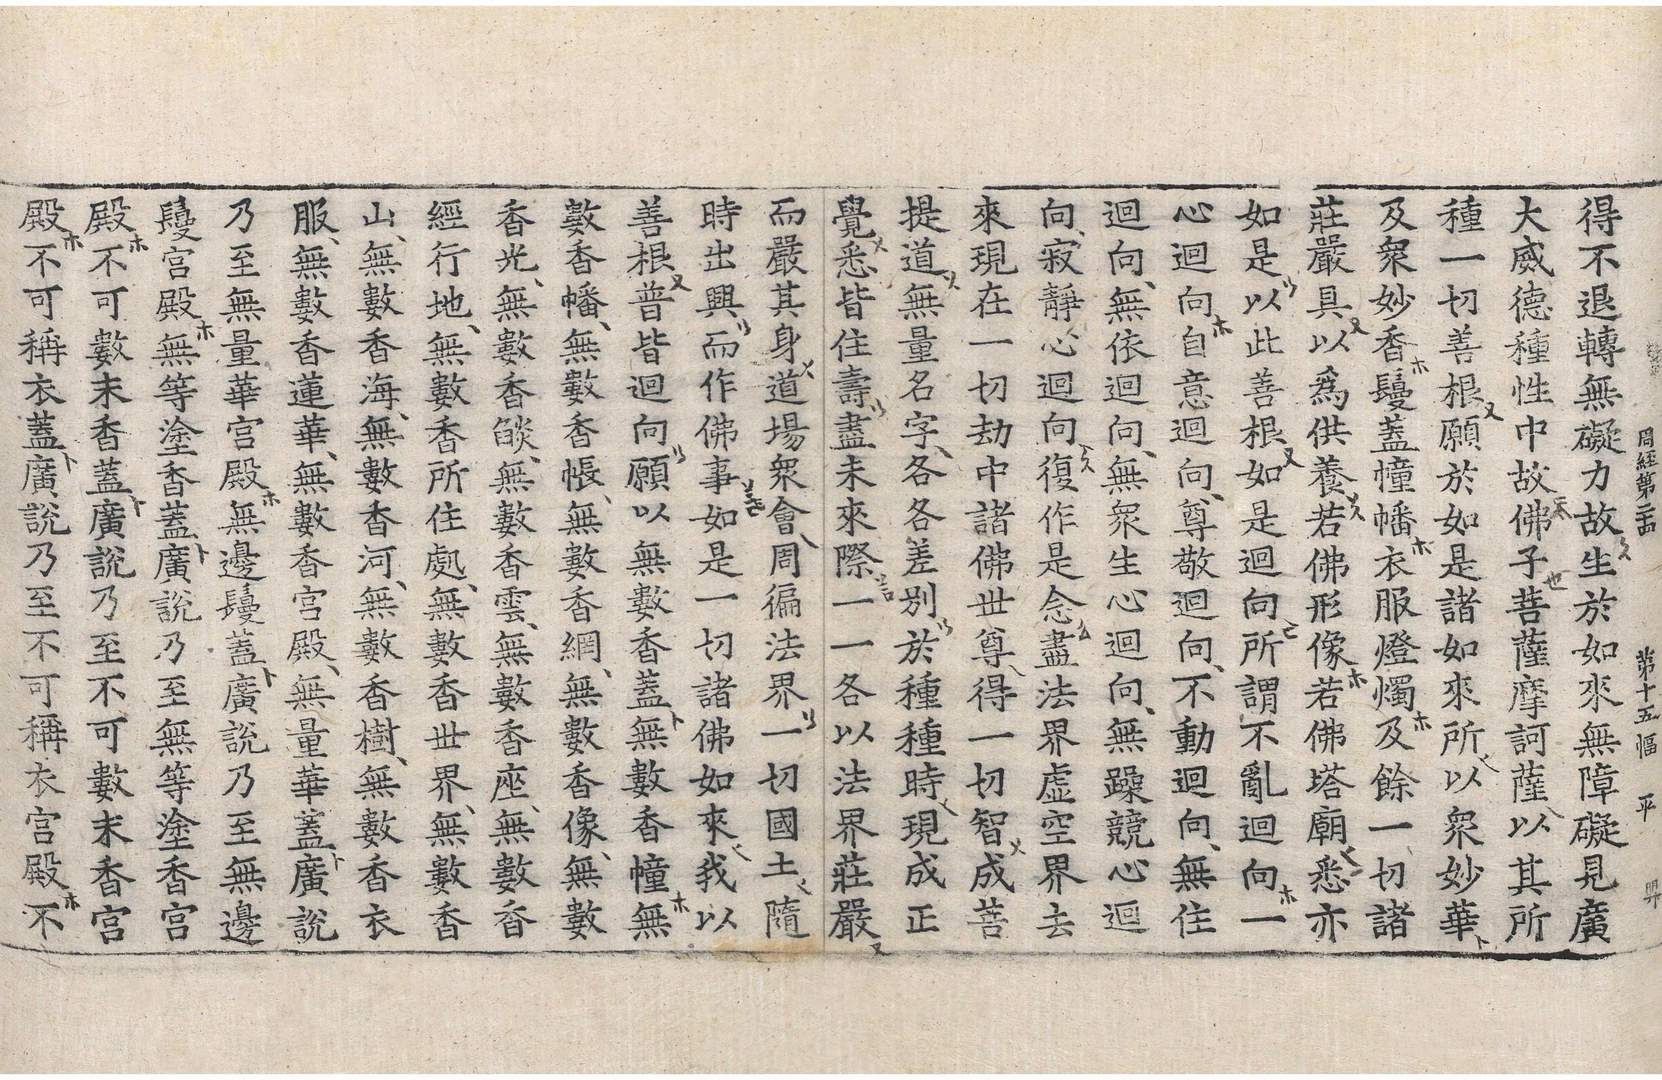 周經第二十四　第十五幅　平
得不退轉無礙力故生於如來無障礙見廣
大威德種性中故佛子菩薩摩訶薩以其所
種一切善根願於如是諸如來所以衆妙華
及衆妙香鬘蓋幢幡衣服燈燭及餘一切諸
莊嚴具以爲供養若佛形像若佛塔廟悉亦
如是以此善根如是迴向所謂不亂迴向一
心迴向自意迴向尊敬迴向不動迴向無住
迴向無依迴向無衆生心迴向無躁競心迴
向寂靜心迴向復作是念盡法界虛空界去
來現在一切劫中諸佛世尊得一切智成菩
提道無量名字各各差別於種種時現成正
覺悉皆住壽盡未來際一一各以法界莊嚴
而嚴其身道場衆會周徧法界一切國土隨
時出興而作佛事如是一切諸佛如來我以
善根普皆迴向願以無數香蓋無數香幢無
數香幡無數香帳無數香網無數香像無數
香光無數香燄無數香雲無數香座無數香
經行地無數香所住處無數香世界無數香
山無數香海無數香河無數香樹無數香衣
服無數香蓮華無數香宮殿無量華蓋廣說
乃至無量華宮殿無邊鬘蓋廣說乃至無邊
鬘宮殿無等塗香蓋廣說乃至無等塗香宮
殿不可數末香蓋廣說乃至不可數末香宮
殿不可稱衣蓋廣說乃至不可稱衣宮殿不